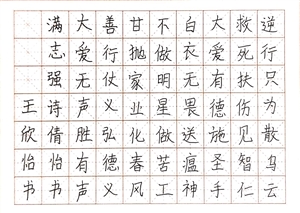 逆行只为散乌云
救死扶伤见智仁
大爱有德施圣手
白衣无畏送瘟神
不做明星做苦工
甘抛家业化春风
善行仗义弘德义
大爱无声胜有声
满志强诗倩怡书
王欣怡书